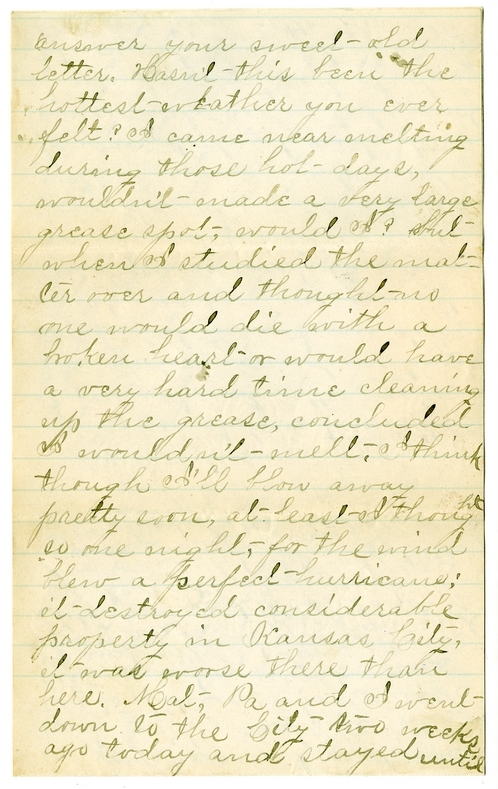 answer your sweet old
letter. Hasn't this been the
hottest weather you ever
felt? I came near melting
during those hot days,
wouldn't made a very large
grease spot, would I? but
when I studied the mat-
ter over and thought no
one would die with a
broken heart or would have
a very hard time cleaning
up the grease, concluded
I wouldn't melt, I think
though I'll blow away
pretty soon, at least I thought
so one night, for the wind
blew a perfect hurricane;
it destroyed considerable
property in Kansas City,
it was worse there than
here. Mat, Pa and I went
down to the City two weeks
ago today and stayed until